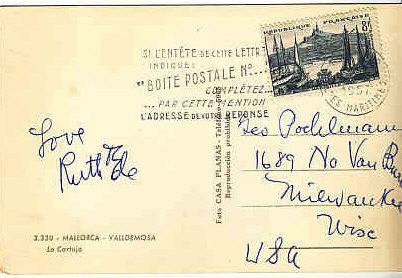 SI L'ENTÊTE DE CETTE LETTRE
INDIQUE:
"BOITE POSTALE No...
COMPLÉTEZ...
...PAR CETTE MENTION
L'ADRESSE DE VOTRE RÉPONSE
REPUBLIQUE FRANÇAISE
8f
1957
ES MARITIME
Love
Ruth
Foto CASA PLANAS - Teléfono
Reproducción prohibida
Geo Pochlmann
1689 No Van Buren
Milwaukee
Wisc
USA
3.330 - MALLORCA - VALLDEMOSA
La Cartuja